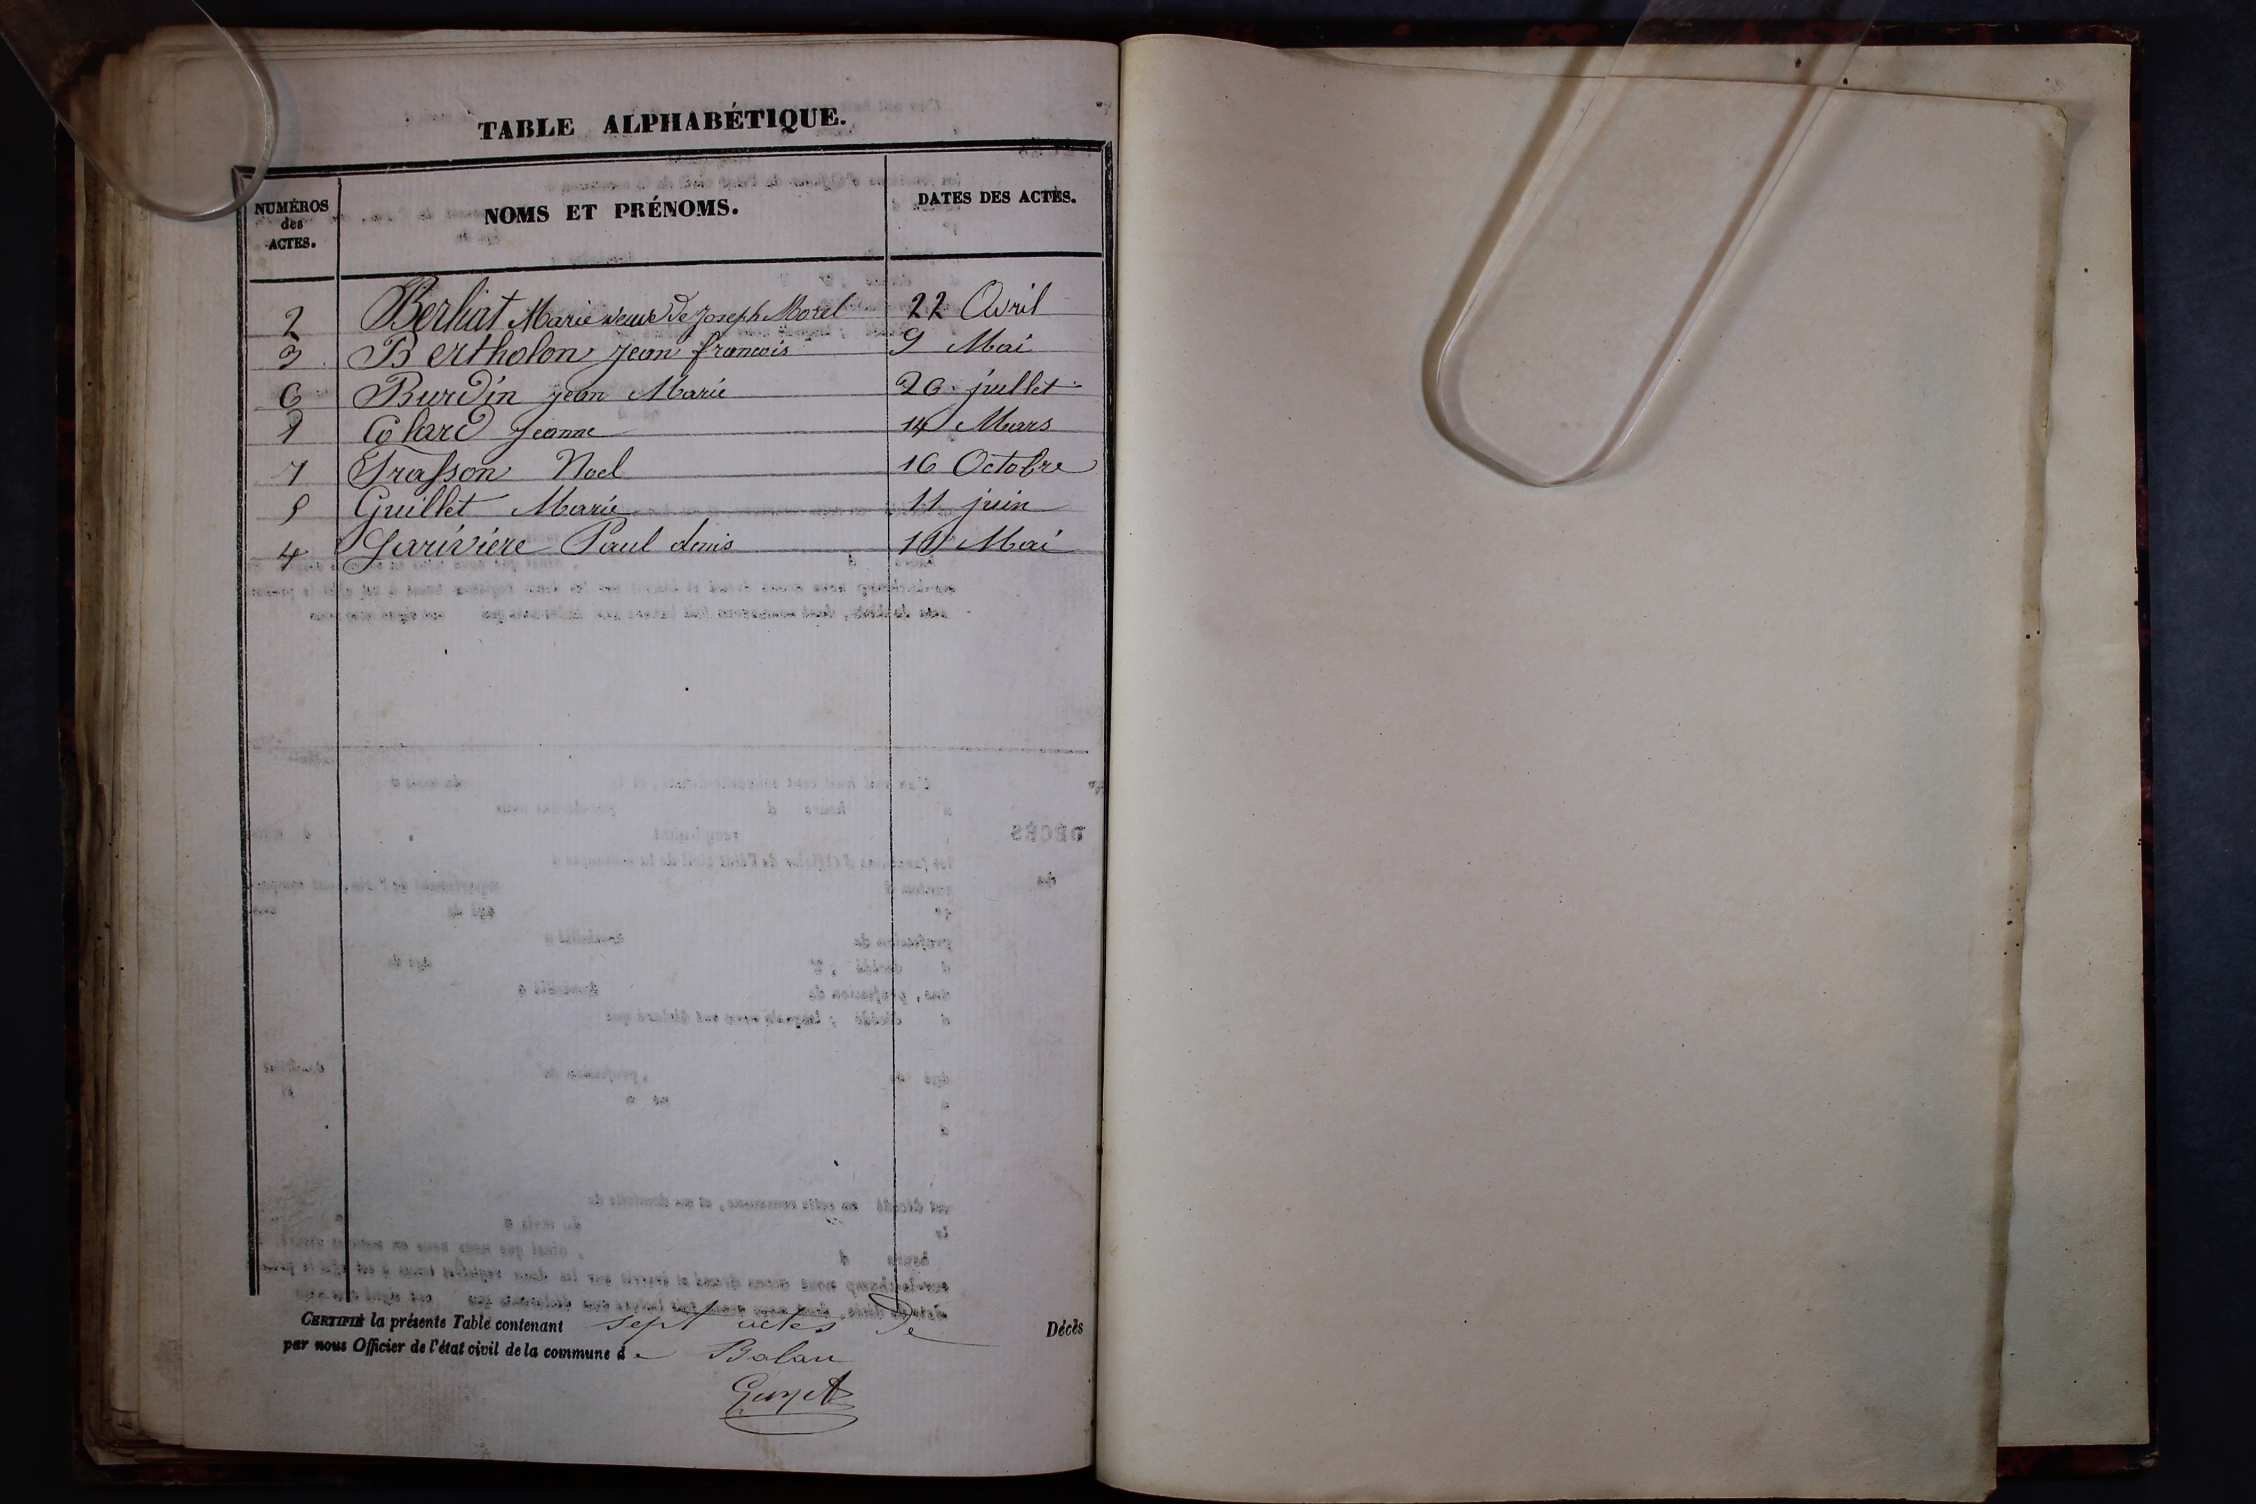 TABLE ALPHABÉTIQUE.
NUMÉROS des ACTES. NOMS ET PRÉNOMS. DATES DES ACTES.
2 Berliat Marie veuve de Joseph Morel 22 Avril
3 Bertholon jean francois 9 Mai
6 Burdin jean Marie 26 juillet
1 Colard Jeanne 14 Mars
7 Frasson Noel 16 Octobre
5 Guillet Marie 11 juin
4 Lariviere Paul denis 11 Mai
CERTIFIÉ la présente Table contenant sept actes de Décès
par nous Officier de l'état civil de la commune de Balan